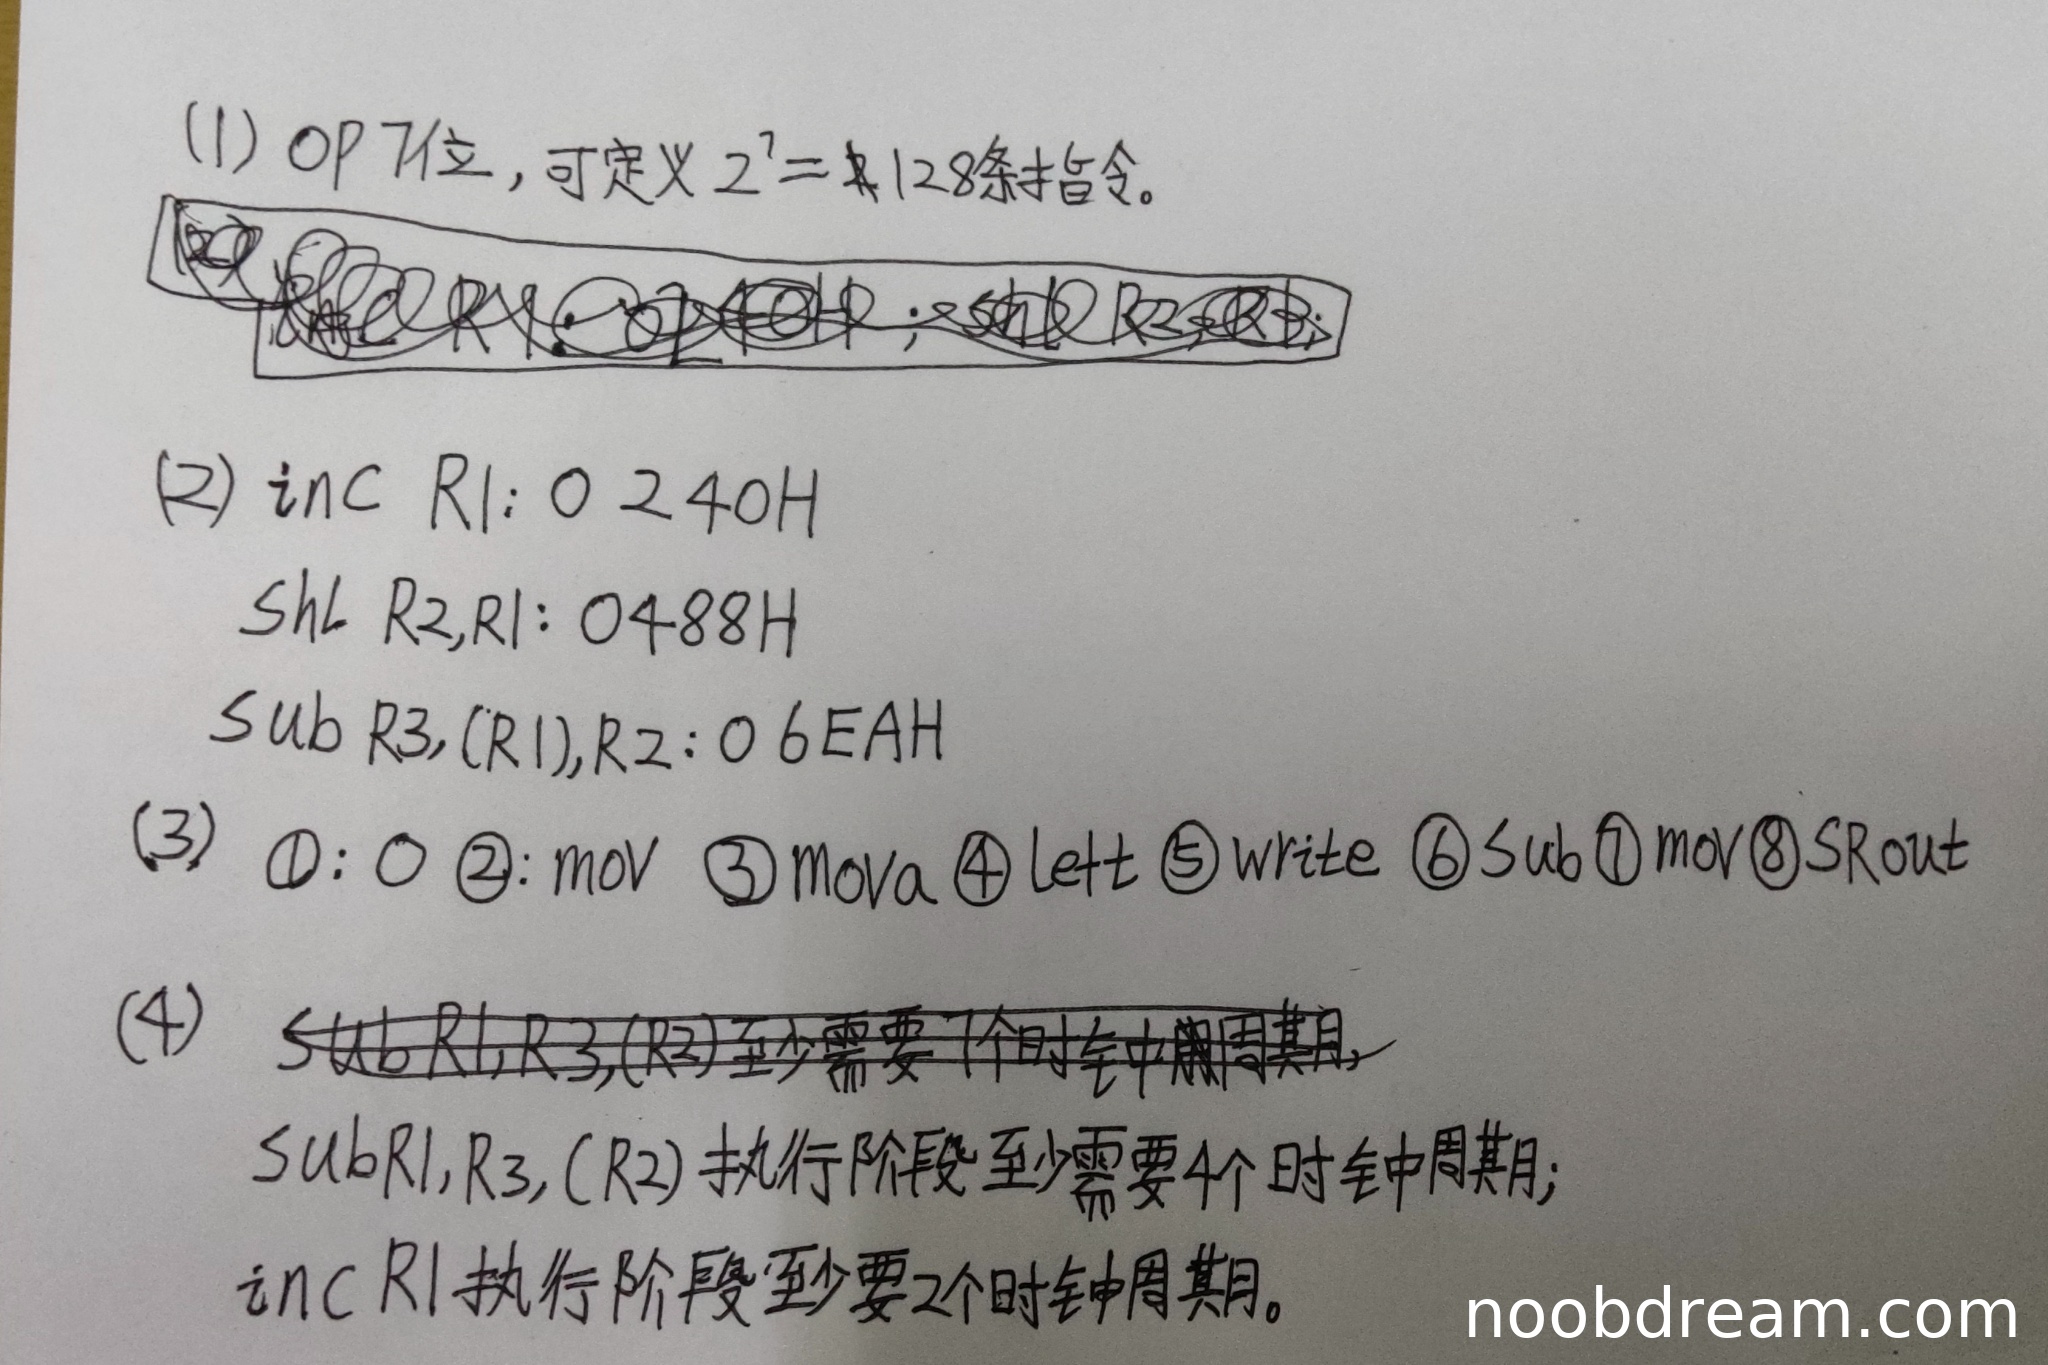 (1) OP 7位，可定义 2⁷=128条指令。
(2) inc R1: 0240H
shL R2,R1: 0488H
sub R3,(R1),R2: 06EAH
(3) ①: 0 ②: mov ③mova ④left ⑤write ⑥sub ⑦mov ⑧SRout
(4) sub R1,R3,(R2)至少需要7个时钟周期，
subR1,R3,(R2)执行阶段至少需要4个时钟周期；
inc R1执行阶段至少要2个时钟周期。
noobdream.com